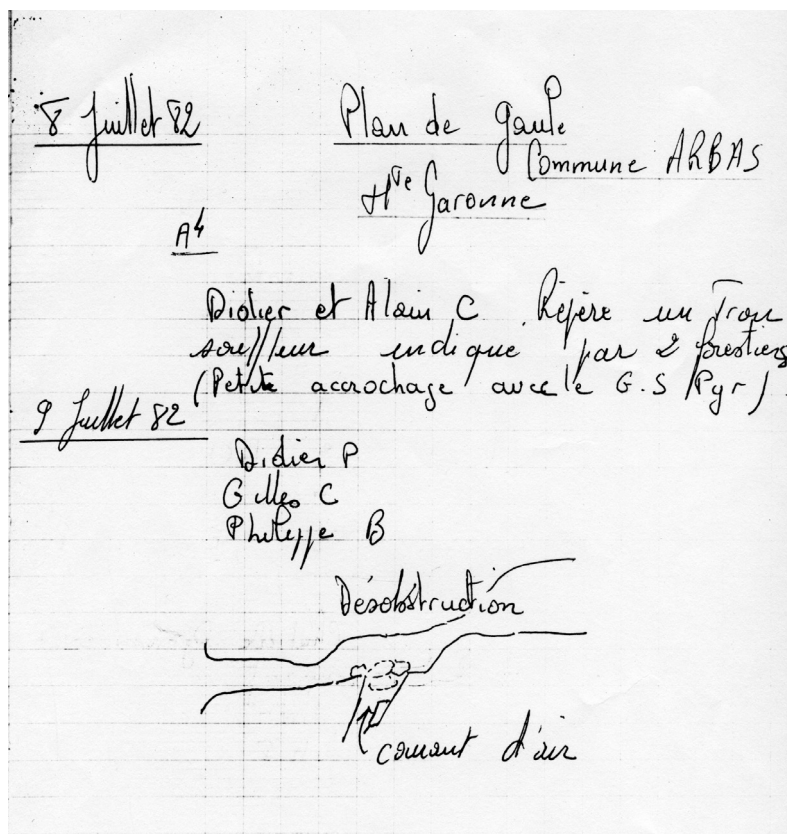 8 Juillet 82
Plan de gaule
Commune ARBAS
Hte Garonne
A4
Didier et Alain C. Répère un Trou
souffleur indique par 2 forestiers
(Petite accrochage avec le G.S Pyr).
9 Juillet 82
Didier P
Gilles C
Philippe B
Désobstruction
courant d'air